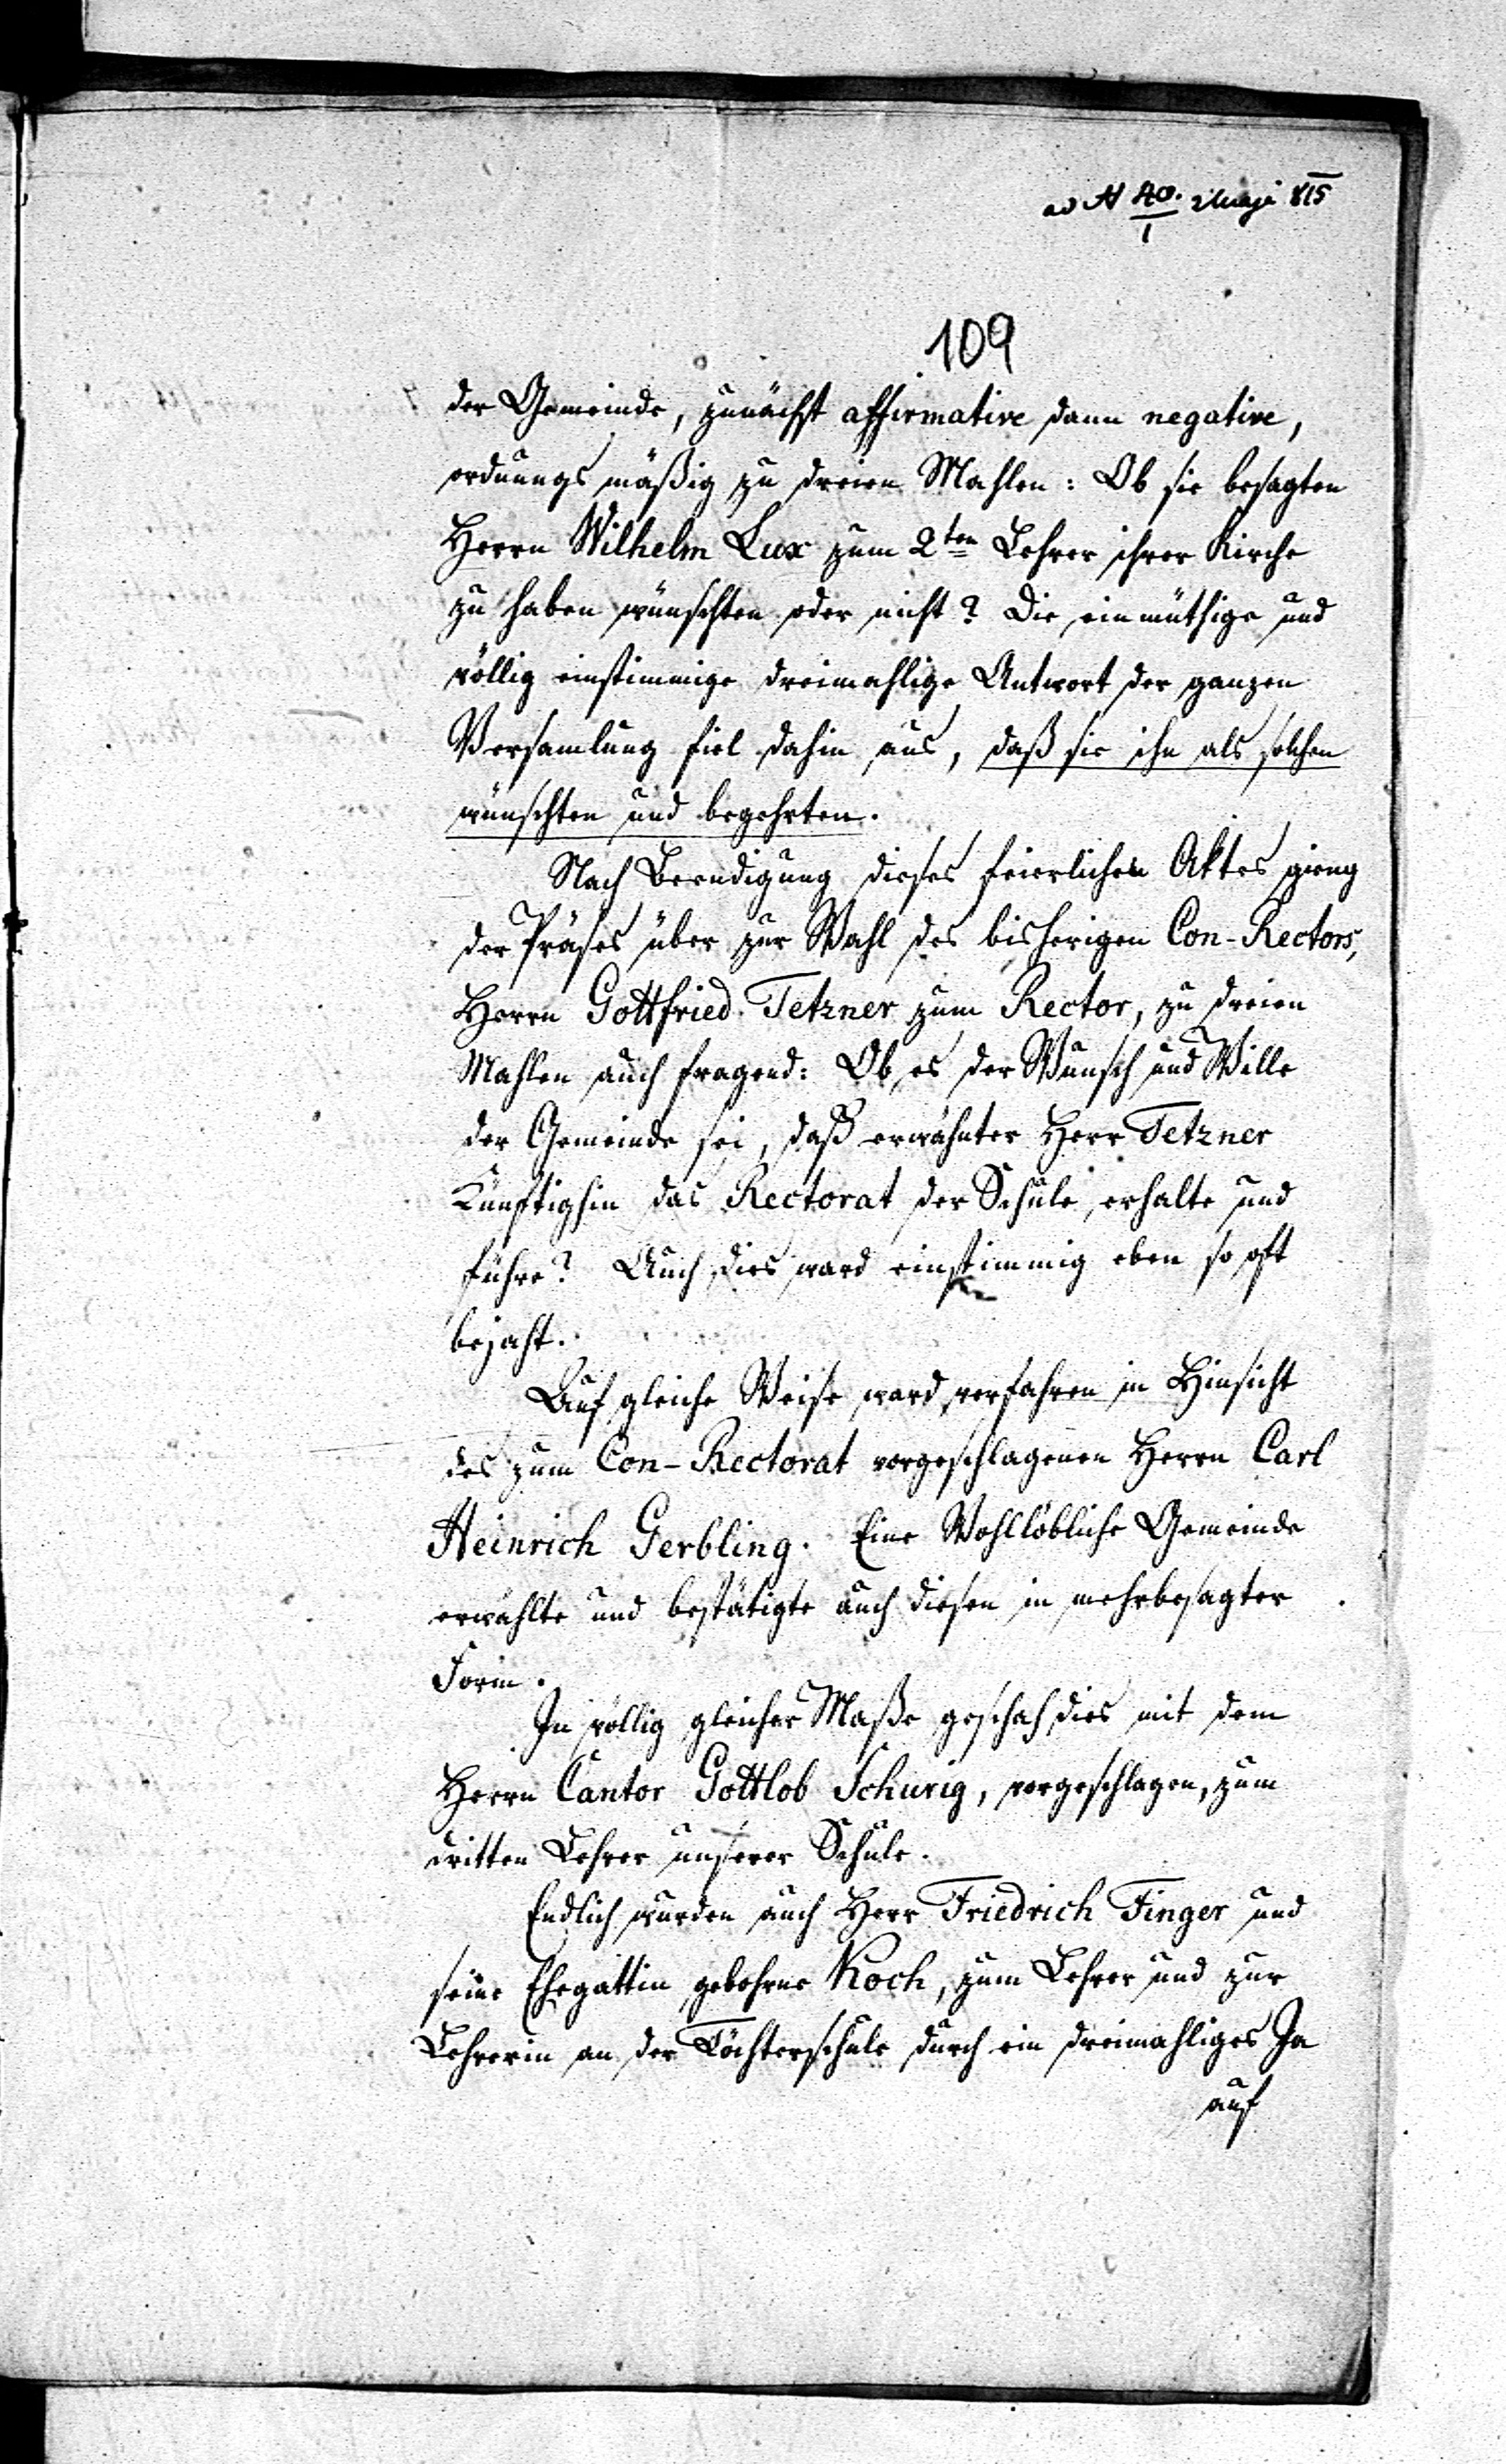 ad N 40./1 Maji 815
109
der Gemeinde, zunächst affirmative dann negative,
ordnungs mäßig zu dreien Mahlen: Ob sie besagten
Herrn Wilhelm Lux zum 2ten Lehrer ihrer Kirche
zu haben wünschten oder nicht? Die einmüthige und
völlig einstimmige dreimahlige Antwort der ganzen
Versamlung fiel dahin aus, daß sie ihn als solchen
wünschten und begehrten.
Nach Beendigung dieses feierlichen Aktes gieng
der Präses über zur Wahl des bisherigen Con-Rectors,
Herrn Gottfried Tetzner zum Rector, zu dreien
Mahlen auch fragend: Ob es der Wunsch und Wille
der Gemeinde sei, daß erwähnter Herr Tetzner
Künftighin das Rectorat der Schule erhalte und
führe? Auch dies ward einstimmig eben so oft
bejaht.
Auf gleiche Weise ward verfahren in Hinsicht
des zum Con-Rectorat vorgeschlagenen Herrn Carl
Heinrich Gerbling. Eine Wohllöbliche Gemeinde
erwählte und bestätigte auch diesen in mehrbesagter
Form.
In völlig gleicher Maße geschah dies mit dem
Herrn Cantor Gottlob Schurig, vorgeschlagen, zum
dritten Lehrer unserer Schule.
Endlich wurden auch Herr Friedrich Finger und
seine Ehegattin gebohrne Koch, zum Lehrer und zur
Lehrerin an der Töchterschule durch ein dreimahliges Ja
auf